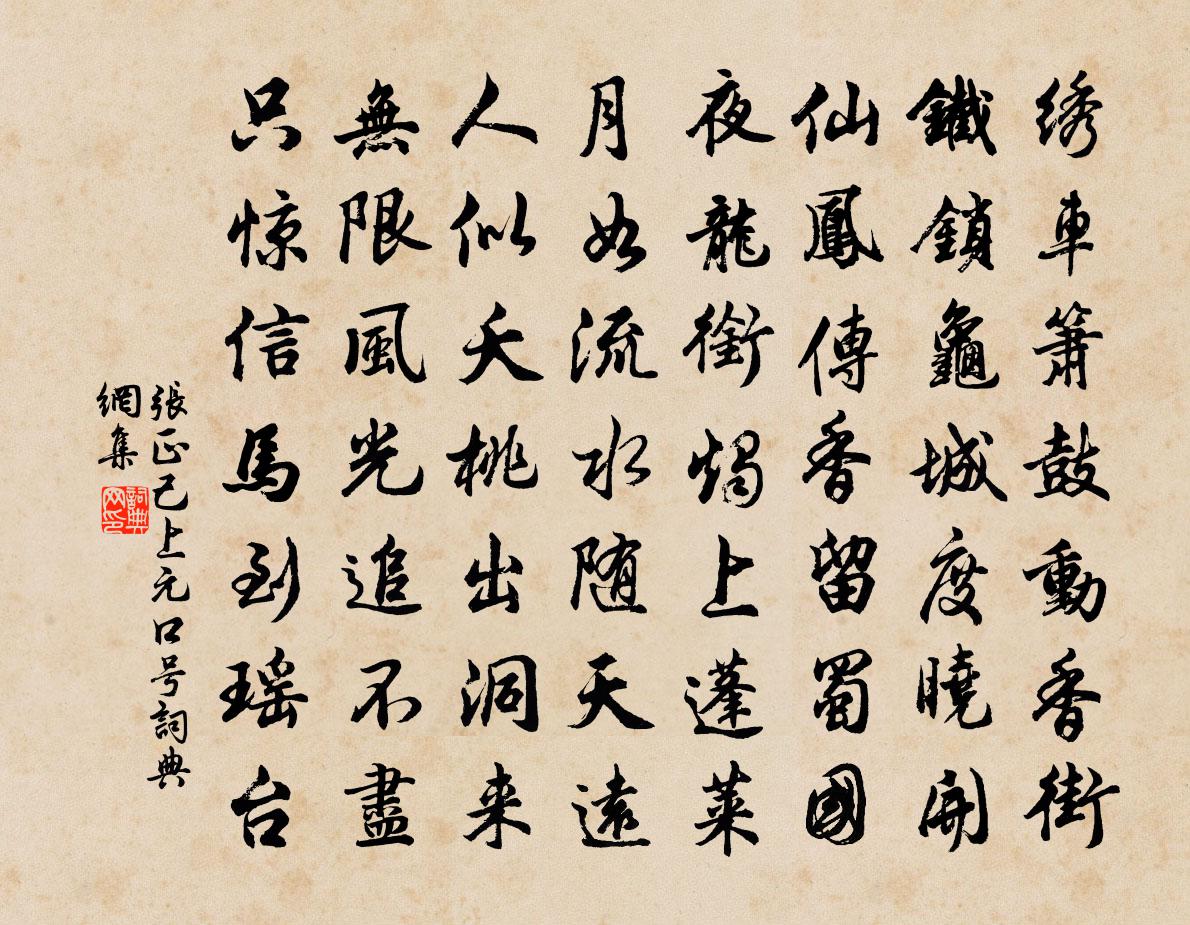 绣車簫鼓動香街
鐵鎖龜城度曉開
仙鳳傳香留蜀國
夜龍銜燭上蓬萊
月如流水随天遠
人似夭桃出洞来
無限風光追不盡
只惊信馬到瑶台
張正己上元口号詞典
網集
詞典
网印